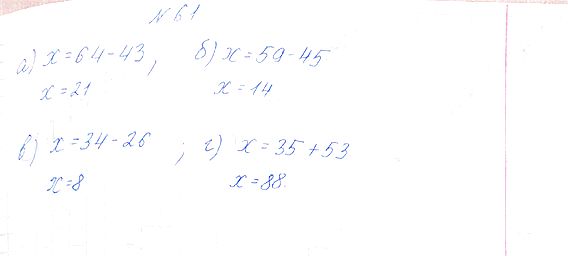 № 61
а) x = 64 - 43 , б) x = 59 - 45
x = 21 x = 14
в) x = 34 - 26 ; г) x = 35 + 53
x = 8 x = 88.